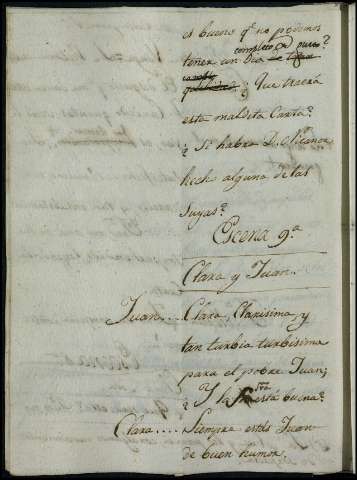 es bueno qᵉ no podamos
completo
tener un dia
¿Que traerá
esta maldita Carta?
¿Si habrá D. Nicanor
hech alguna de las
suyas?
Escena 9ª
Clara y Juan.
Juan.... Clara, Clarisima, y
tan turbia turbisima
para el pobre Juan;
¿Y la Sra está buena?
Clara.... Siempre estás Juan
de buen humor.